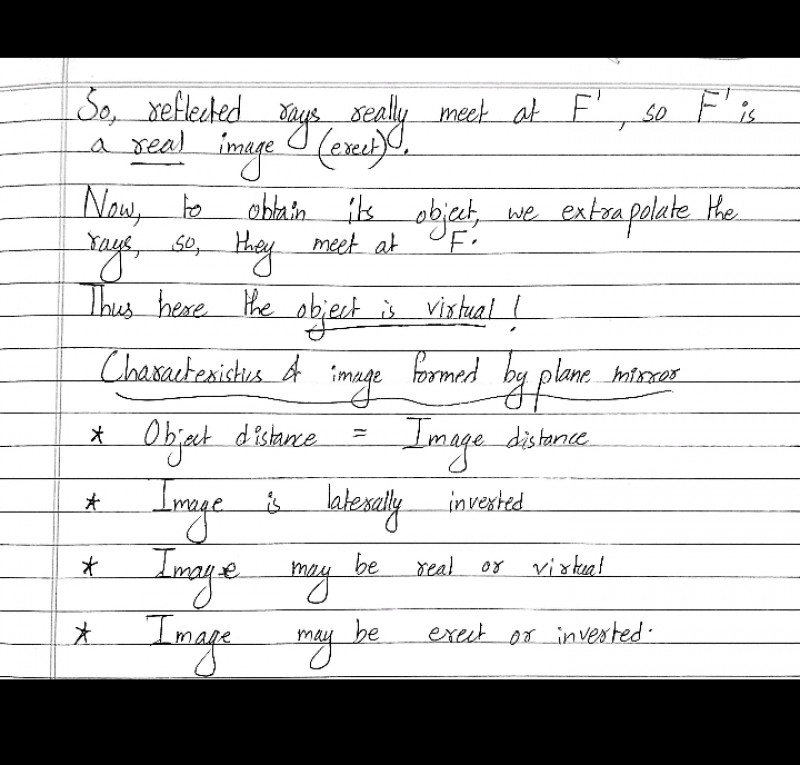 So, reflected rays really meet at F', so F' is
a real image (erect).
Now, to obtain its object, we extrapolate the
rays, so, they meet at F.
Thus here the object is virtual!
Characteristics of image formed by plane mirror
* Object distance = Image distance
* Image is laterally inverted
* Image may be real or virtual
* Image may be erect or inverted.